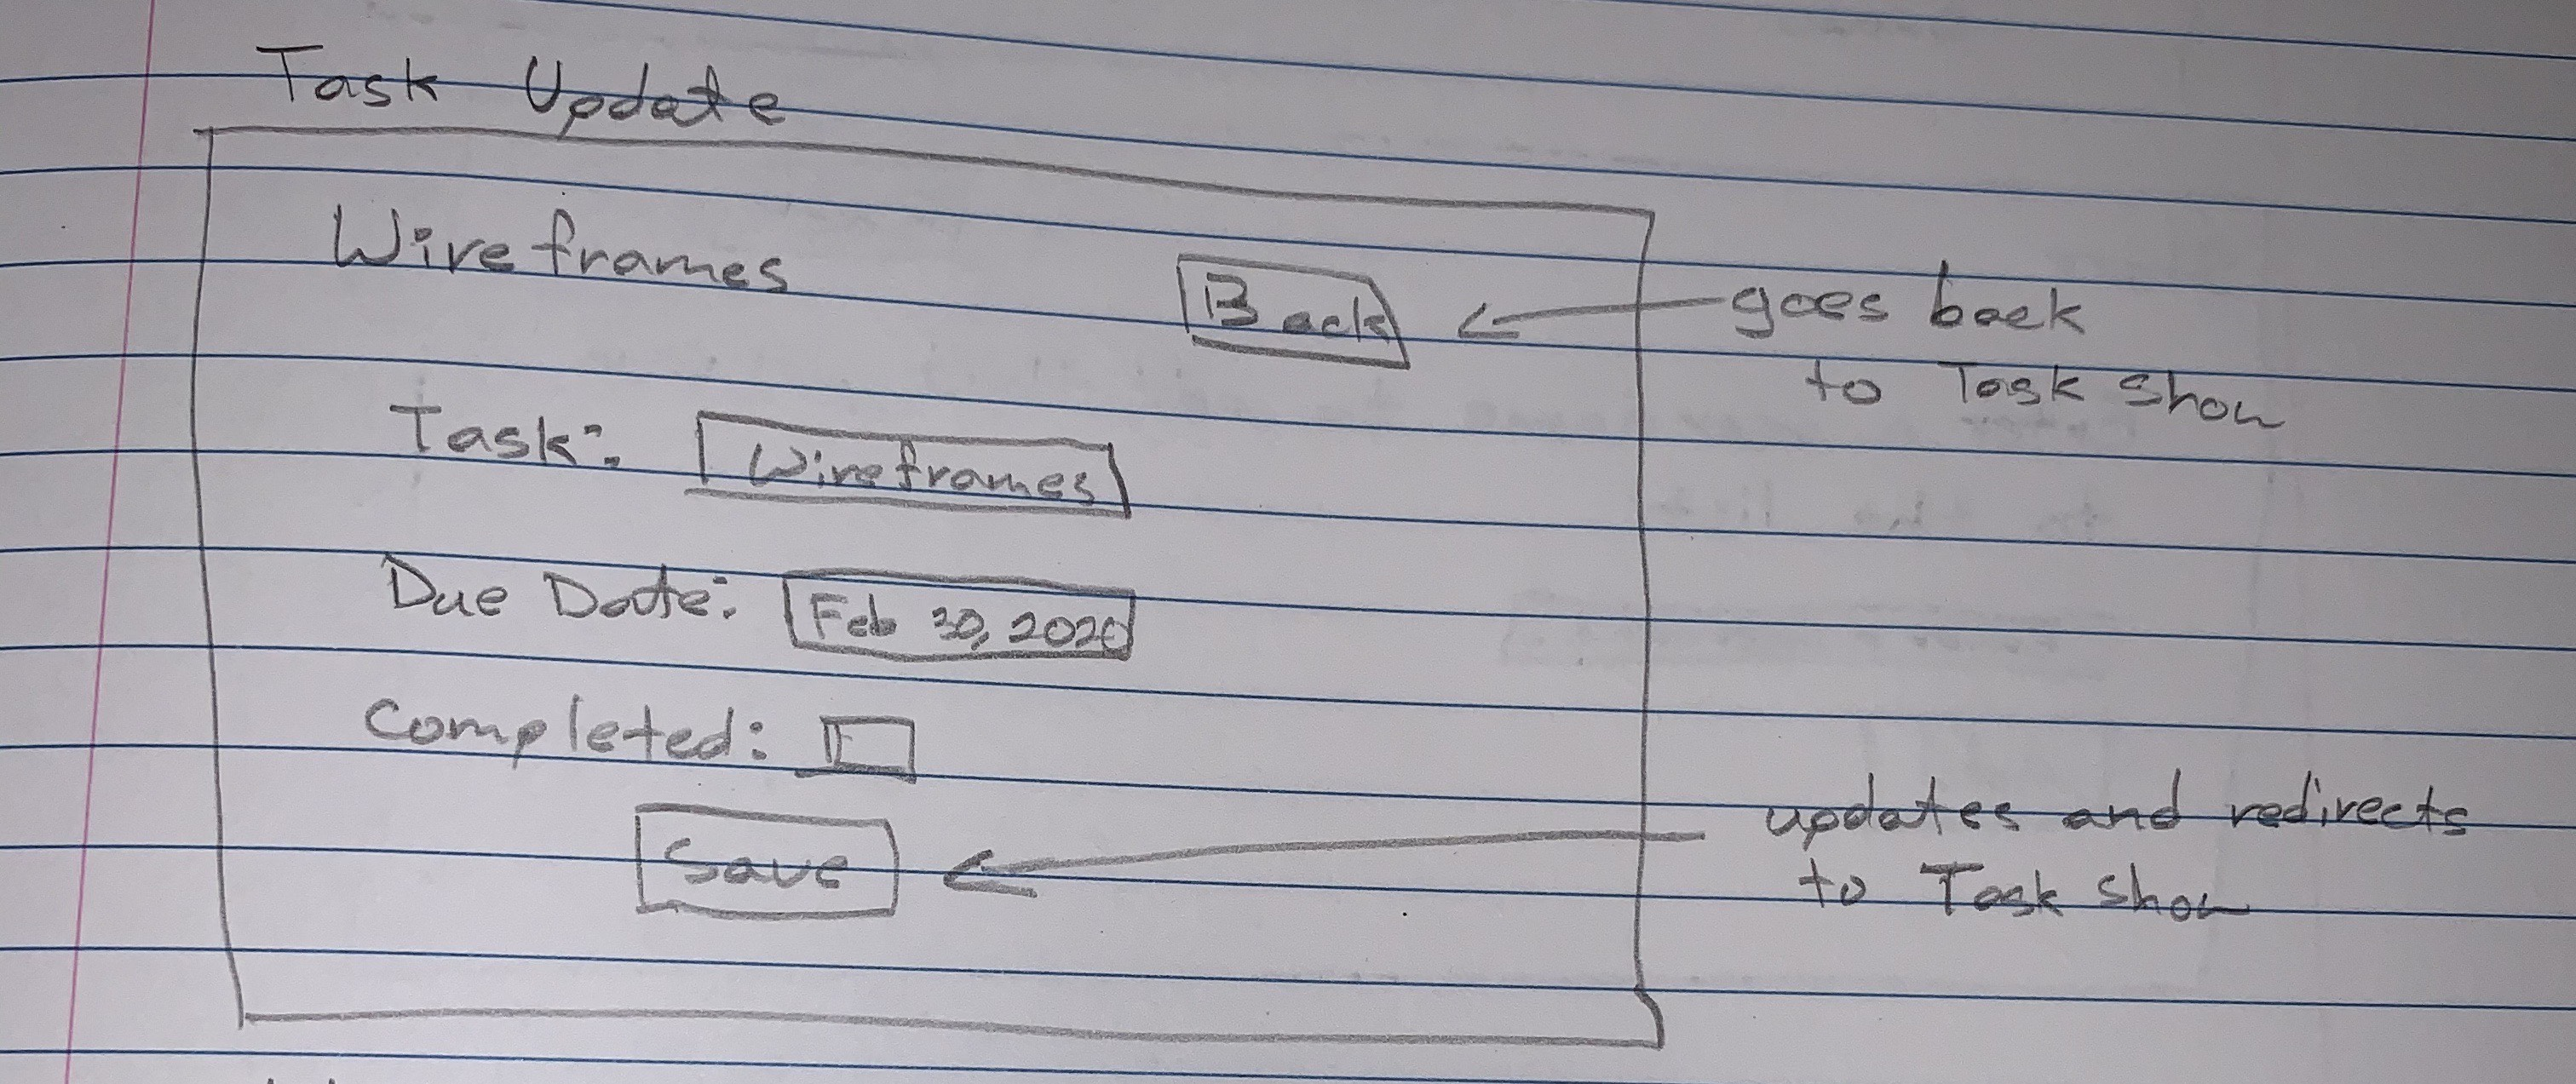 Task Update
Wireframes
Back
goes back
to Task Show
Task: Wireframes
Due Date: Feb 30, 2020
Completed:
Save
updates and redirects
to Task Show